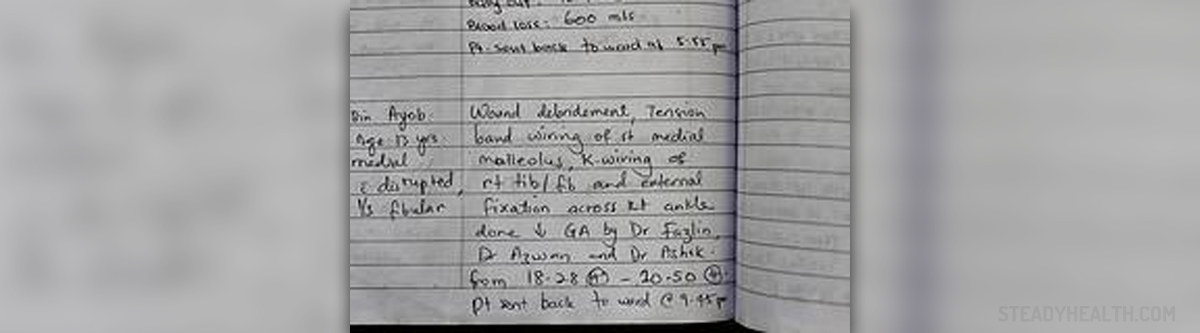 Blood loss: 600 mls
Pt. sent back to ward at 5.55 pm
Bin Ayob.
Age 13 yrs.
medial
c̄ disrupted,
⅓ fibular
Wound debridement, Tension
band wiring of rt medial
malleolus, K-wiring of
rt tib/fib and external
fixation across Rt ankle
done ↓ GA by Dr Fazlin,
Dr Azwan and Dr Ashik.
from 18-28 - 20-50
pt sent back to ward @ 9.45 p
STEADYHEALTH.COM